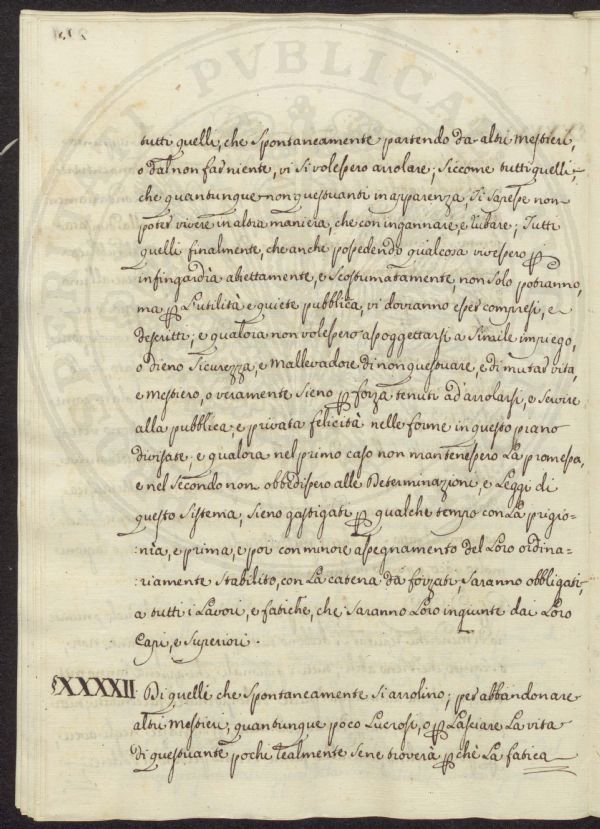 tutti quelli, che spontaneamente partendo da altri Mestieri,
o dal non far niente, vi si volessero arrolare; siccome tutti quelli,
che quantunque non questuanti in apparenza, si sapesse non
poter vivere in altra maniera, che con ingannare, e rubare; Tutti
quelli finalmente, che anche possedendo qualcosa vivessero ꝑ
infingardia abiettamente, e scostumatamente, non solo potranno,
ma ꝑ l'utilità e quiete pubblica, vi dovranno esser compresi, e
descritti; e qualora non volessero assoggettarsi a simile impiego,
o dieno sicurezza, e Mallevadore di non questuare, e di mutar vita,
e Mestiero, o veramente sieno ꝑ forza tenuti ad arrolarsi, e servire
alla pubblica, e privata felicità nelle forme in questo piano
divisate; e qualora nel primo caso non mantenessero la promessa,
e nel secondo non obbedissero alle Determinazioni, e Leggi di
questo sistema, sieno gastigati ꝑ qualche tempo con la prigio=
:nia, e prima, e poi con minore assegnamento del Loro ordina=
:riamente stabilito, con la catena da forzati, saranno obbligati
a tutti i Lavori, e fatiche, che saranno Loro ingiunte dai Loro
Capi, e Superiori.
XXXXII. Di quelli che spontaneamente si arrolino, per abbandonare
altri Mestieri, quantunque poco Lucrosi, o ꝑ Lasciare la vita
di questuante pochi realmente se ne troverà ꝑchè la fatica